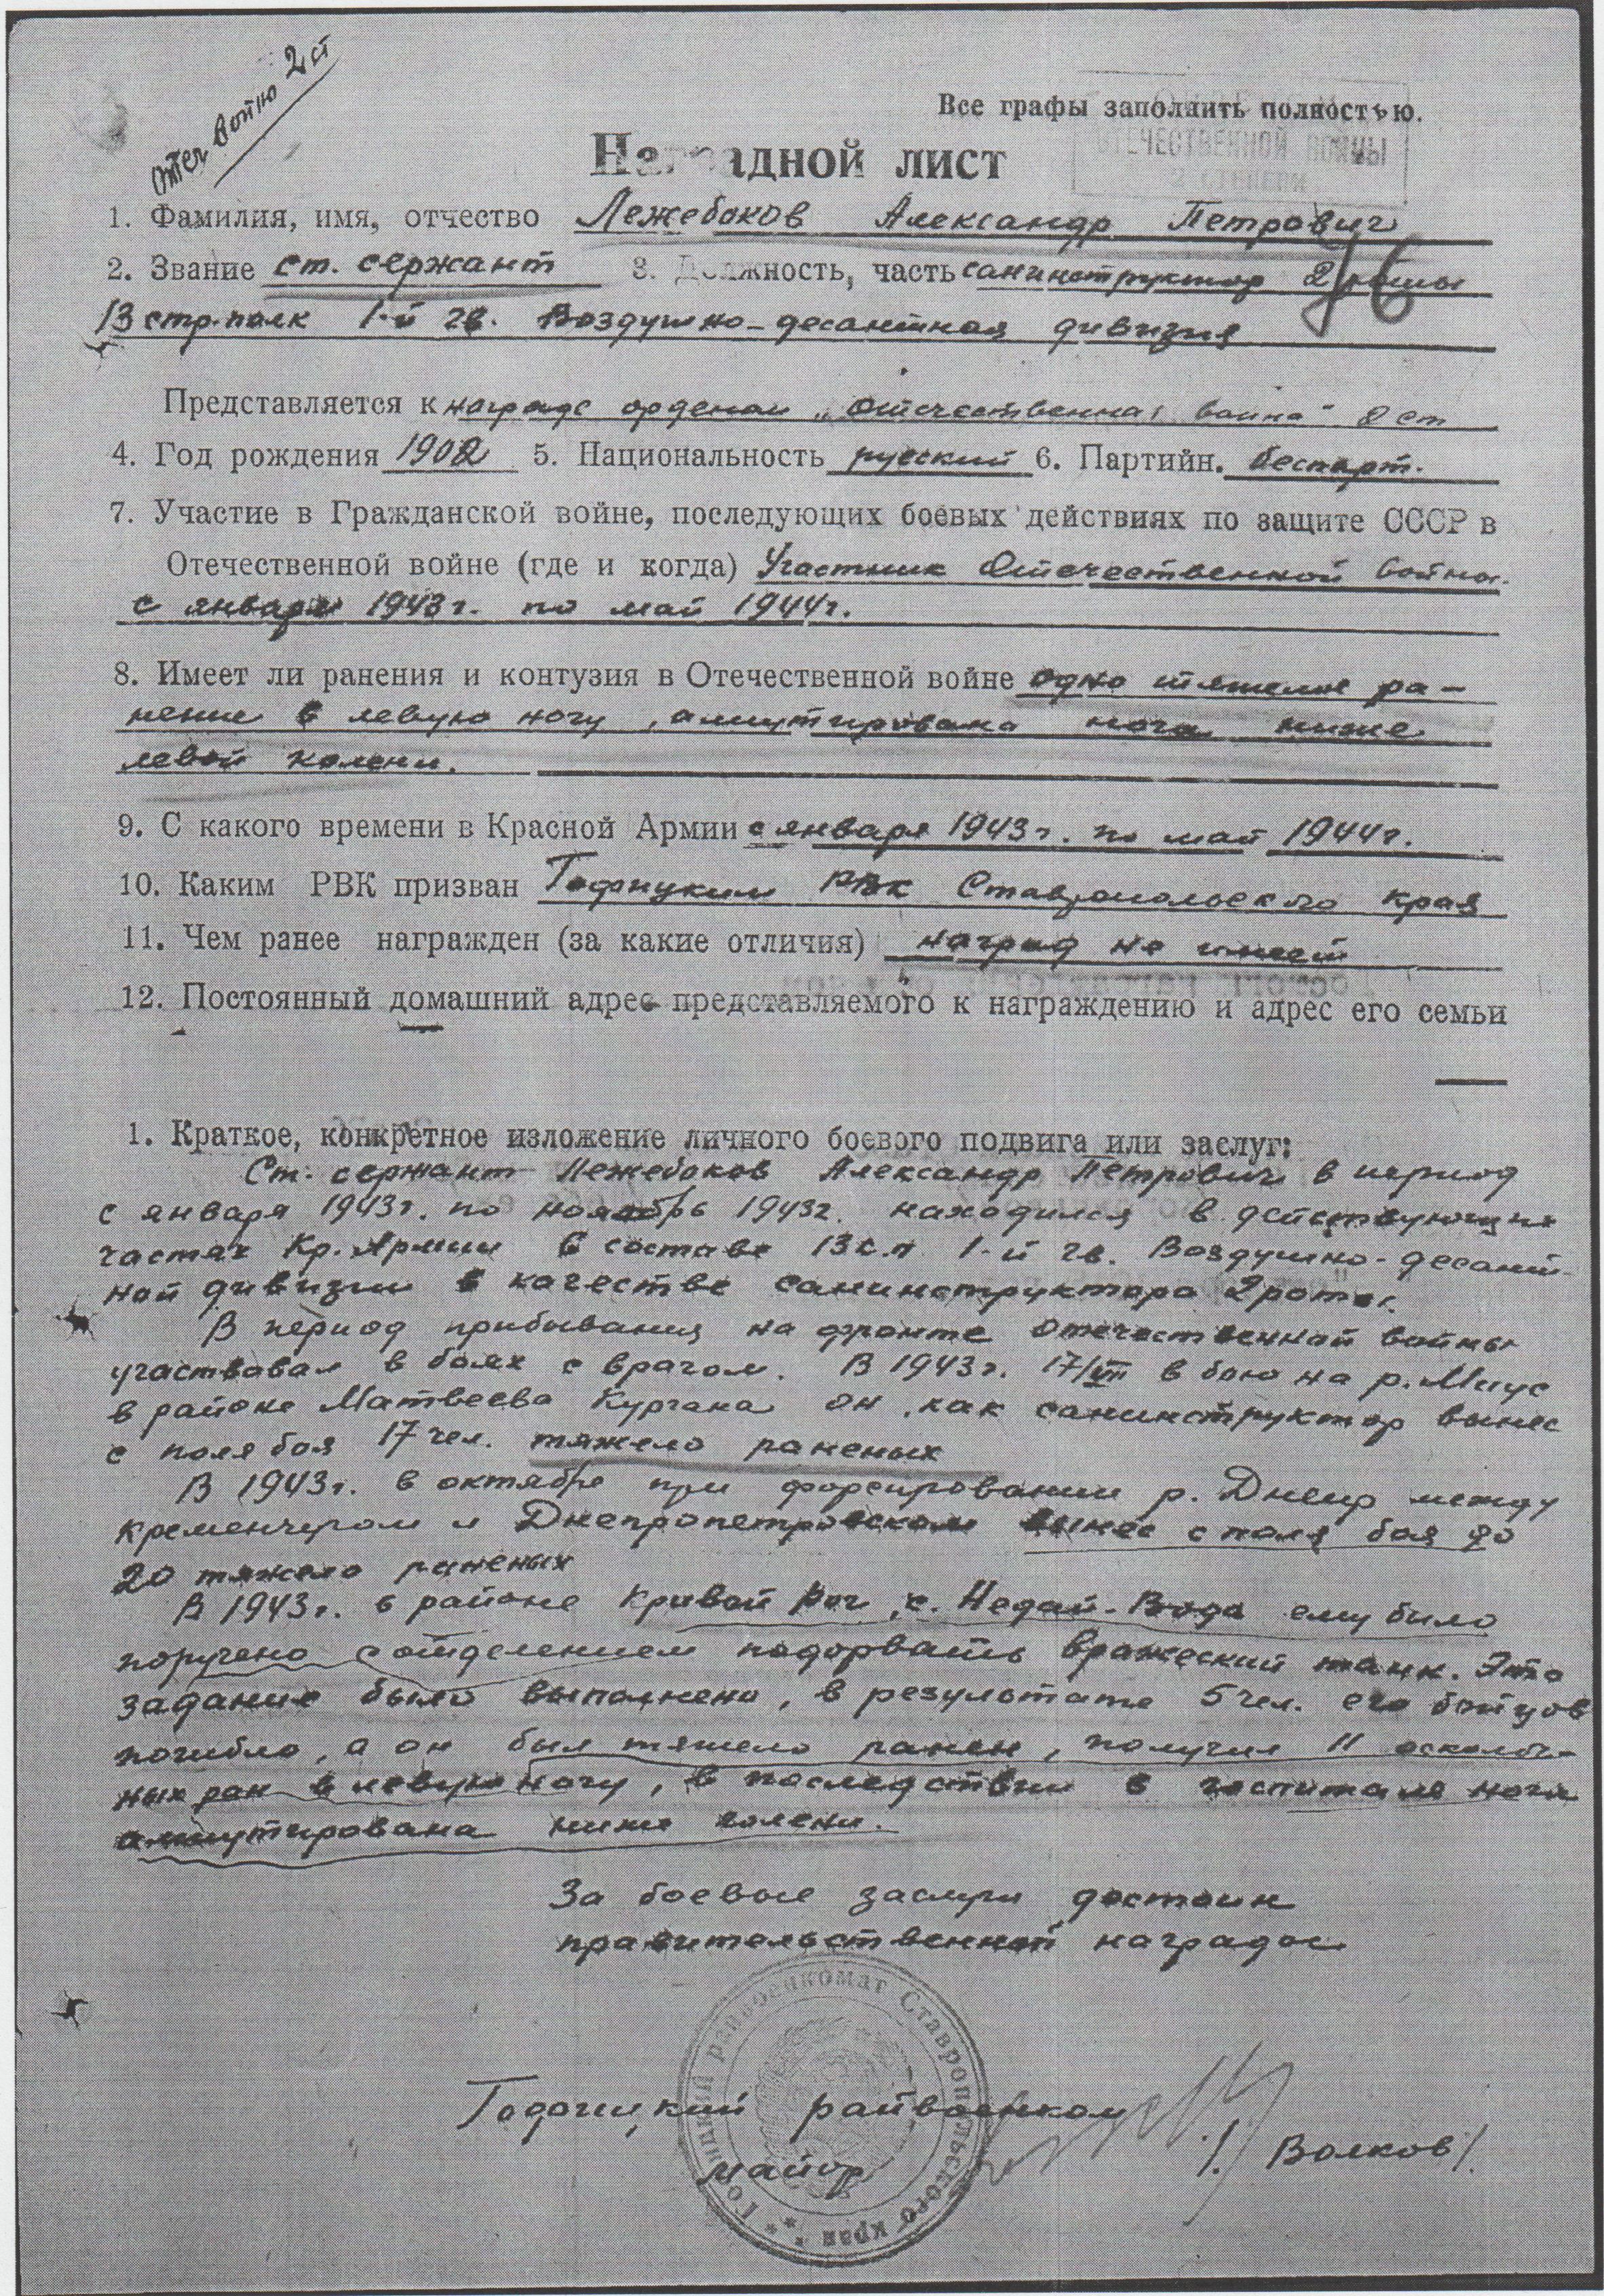 Отеч войны 2 ст
Все графы заполнить полностью.
ОТЕЧЕСТВЕННОЙ ВОЙНЫ
2 СТЕПЕНИ
Наградной лист
1. Фамилия, имя, отчество Лежебоков Александр Петрович
2. Звание ст. сержант 3. Должность, часть санинструктор 2 роты
46
13 стр. полк 1-й гв. Воздушно-десантная дивизия
Представляется к награде орденом „Отечественная война" 2 ст
4. Год рождения 1902 5. Национальность русский 6. Партийн. беспарт.
7. Участие в Гражданской войне, последующих боевых действиях по защите СССР в
Отечественной войне (где и когда) Участник Отечественной войны.
с января 1943 г. по май 1944 г.
8. Имеет ли ранения и контузия в Отечественной войне одно тяжелое ра-
нение в левую ногу, ампутирована нога ниже
левой колени.
9. С какого времени в Красной Армии с января 1943 г. по май 1944 г.
10. Каким РВК призван РВК Ставропольского края
11. Чем ранее награжден (за какие отличия) наград не имеет
12. Постоянный домашний адрес представляемого к награждению и адрес его семьи
1. Краткое, конкретное изложение личного боевого подвига или заслуг:
Ст. сержант Лежебоков Александр Петрович в период
с января 1943 г. по ноябрь 1943 г. находился в действующих
частях Кр. Армии в составе 13 с.п 1-й гв. Воздушно-десант-
ной дивизии в качестве санинструктора 2 роты.
В период прибывания на фронте отечественной войны
участвовал в боях с врагом. В 1943 г. 17/VIII в бою на р. Миус
в районе Матвеева Кургана он, как санинструктор вынес
с поля боя 17 чел. тяжело раненых
В 1943 г. в октябре при форсировании р. Днепр между
Кременчугом и Днепропетровском вынес с поля боя до
20 тяжело раненых
В 1943 г. в районе Кривой Рог, с. Недай-Вода ему было
поручено с отделением подорвать вражеский танк. Это
задание было выполнено, в результате 5 чел. его бойцов
погибло, а он был тяжело ранен, получил 11 осколоч-
ных ран в левую ногу, в последствии в госпитале нога
ампутирована ниже колени.
За боевые заслуги достоин
правительственной награды
райвоенкомат Ставропольского края
райвоенком
майор /Волков/